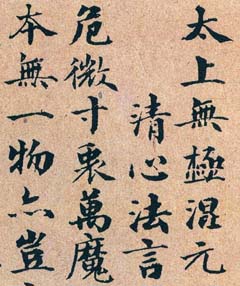 太上無極混元
清心法言
危微寸衷萬魔
本無一物亦豈